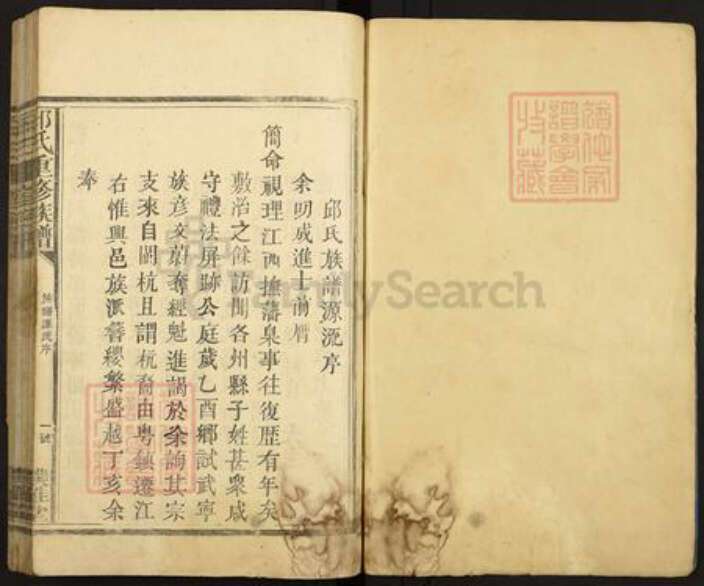 邱氏族譜源流序
余叨成進士前膺
簡命視理江西撫藩臬事徃復歷有年矣
敷治之餘訪聞各州縣子姓甚衆咸
守禮法屏跡公庭歲乙酉鄉試武寧
族彦文蔚奪經魁進謁於余詢其宗
支來自閩杭且謂杭裔由粤鎮遷江
右惟興邑族派簪纓繁盛越丁亥余
奉
邱氏重修族譜
族譜源流序
一號
FamilySearch